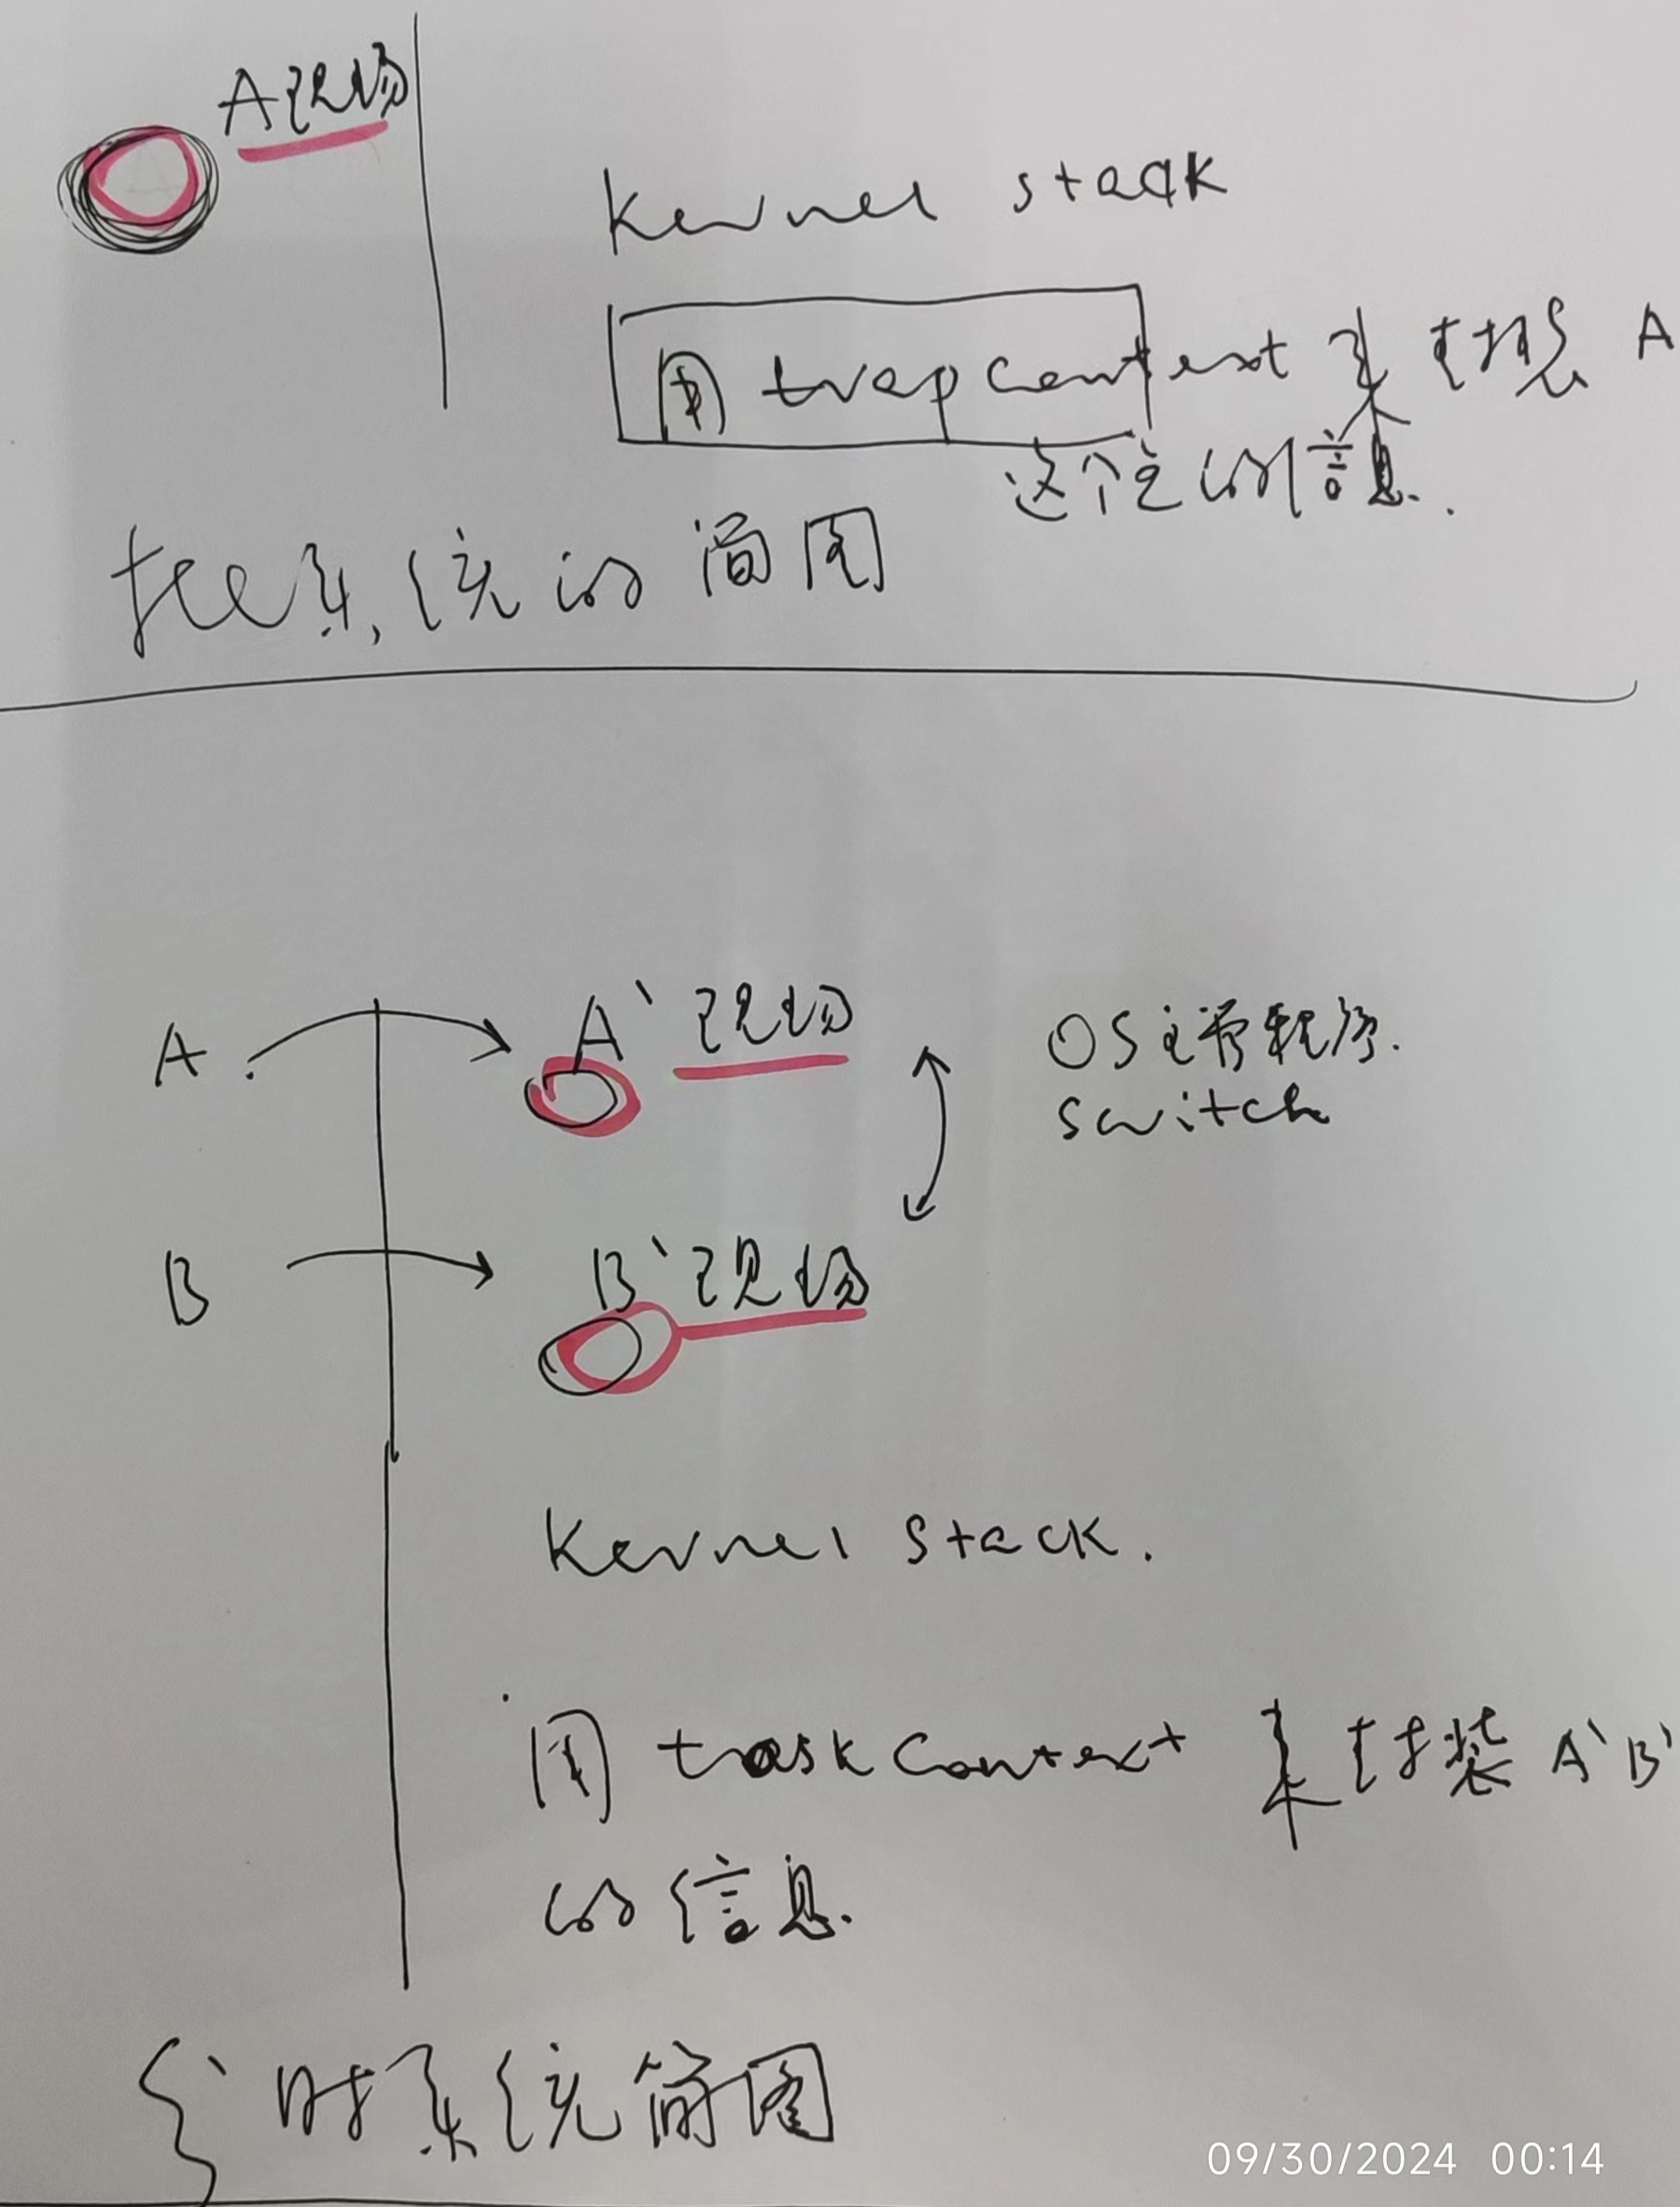 A现场
kernel stack
用 trap context 来封装 A
这个圈的信息.
批系统的简图
A
A` 现场
OS主管程序.
switch
B
B`现场
Kernel stack.
用 task Context 来封装 A`B`
的信息.
分时系统简图
09/30/2024 00:14